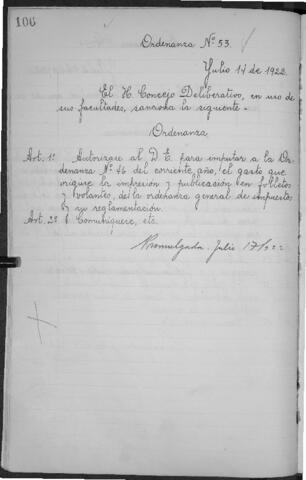 106
Ordenanza Nº 53.
Julio 14 de 1922.
El H. Concejo Deliberativo, en uso de
sus facultades, sanciona la siguiente -
Ordenanza
Art. 1º Autorízase al D. E. para imputar a la Or-
denanza Nº 46 del corriente año, el gasto que
origine la impresión y publicación en folletos
y volantes, de la ordenanza general de impuestos
y su reglamentación.
Art. 2º Comuníquese, etc.
Promulgada. Julio 17/922